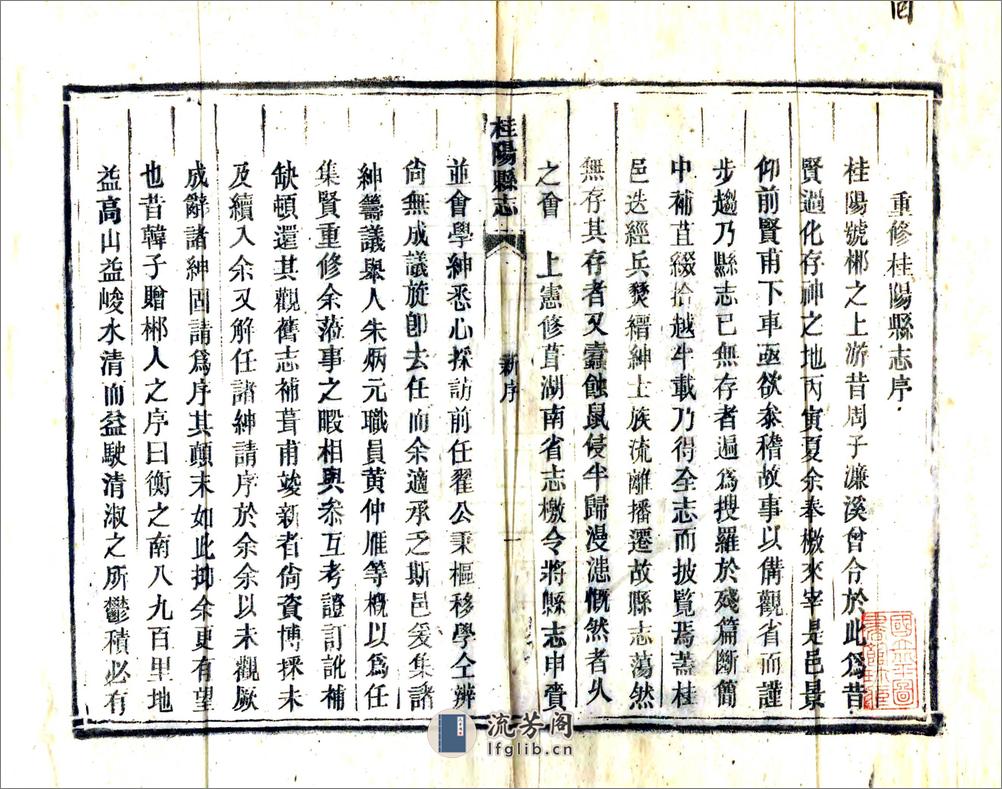 重修桂陽縣志序
桂陽號郴之上游昔周子濂溪曾令於此爲昔
賢過化存神之地丙寅夏余奉檄來宰是邑景
仰前賢甫下車亟欲叅稽故事以備觀省而謹
步趨乃縣志已無存者遍爲搜羅於殘篇斷簡
中補苴綴拾越半載乃得全志而披覽焉蓋桂
邑迭經兵燹縉紳士族流離播遷故縣志蕩然
無存其存者又蠹蝕鼠侵半歸漫漶慨然者久
之會　上憲修葺湖南省志檄令將縣志申賫
桂陽縣志
新序
一
並會學紳悉心採訪前任翟公秉樞移學仝辨
尙無成議旋卽去任而余適承乏斯邑爰集諸
紳籌議舉人朱炳元職員黄仲雁等概以爲任
集賢重修余蒞事之暇相與叅互考證訂訛補
缺頓還其觀舊志補葺甫竣新者尙資博採未
及續入余又解任諸紳請序於余余以未觀厥
成辭諸紳固請爲序其顛末如此抑余更有望
也昔韓子贈郴人之序曰衡之南八九百里地
益高山益峻水清而益駛清淑之所鬱積必有
流芳阁
lfglib.cn